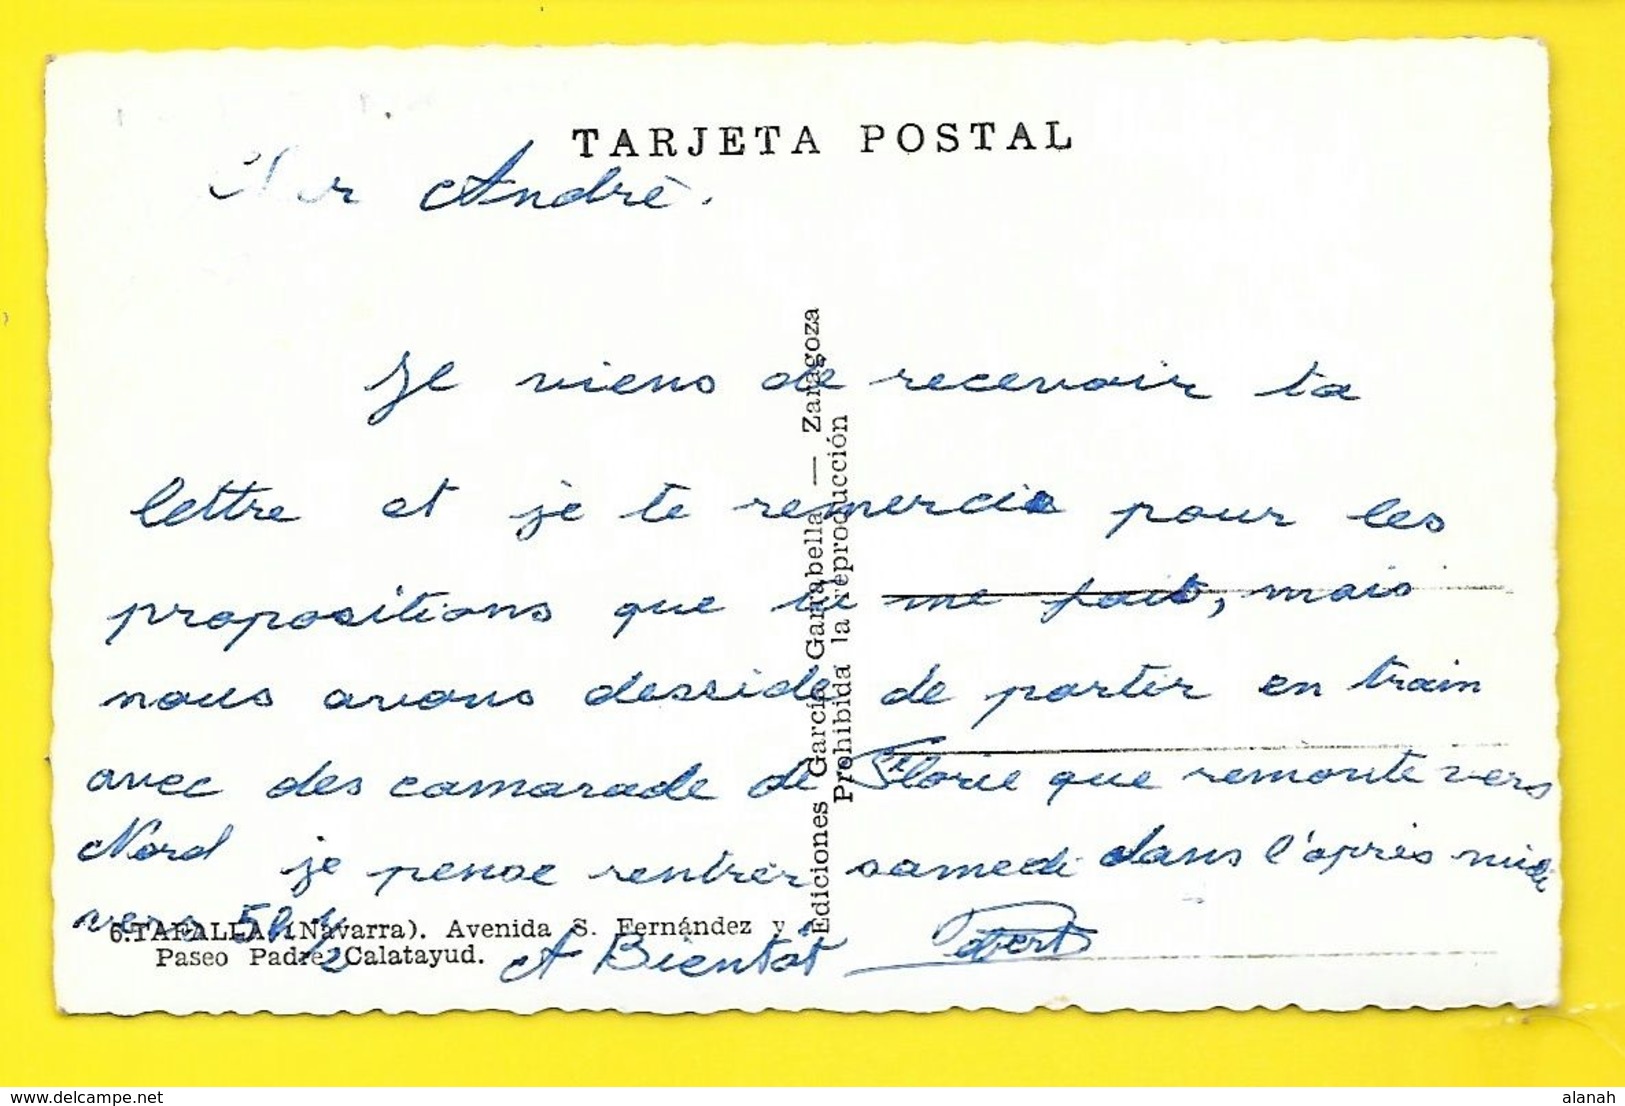 TARJETA POSTAL
Cher André.
Je viens de recevoir ta
lettre et je te remercie pour les
propositions que tu me fait, mais
nous avons desside de partir en train
avec des camarade de Florie que remonte vers
Nord je pense rentrer samedi dans l'après midi
vers 5h 1/2 A Bientôt
6.TAFALLA (Navarra). Avenida S. Fernández y
Paseo Padre Calatayud.
Ediciones García Garrabella — Zaragoza
Prohibida la reproducción
www.delcampe.net
alanah